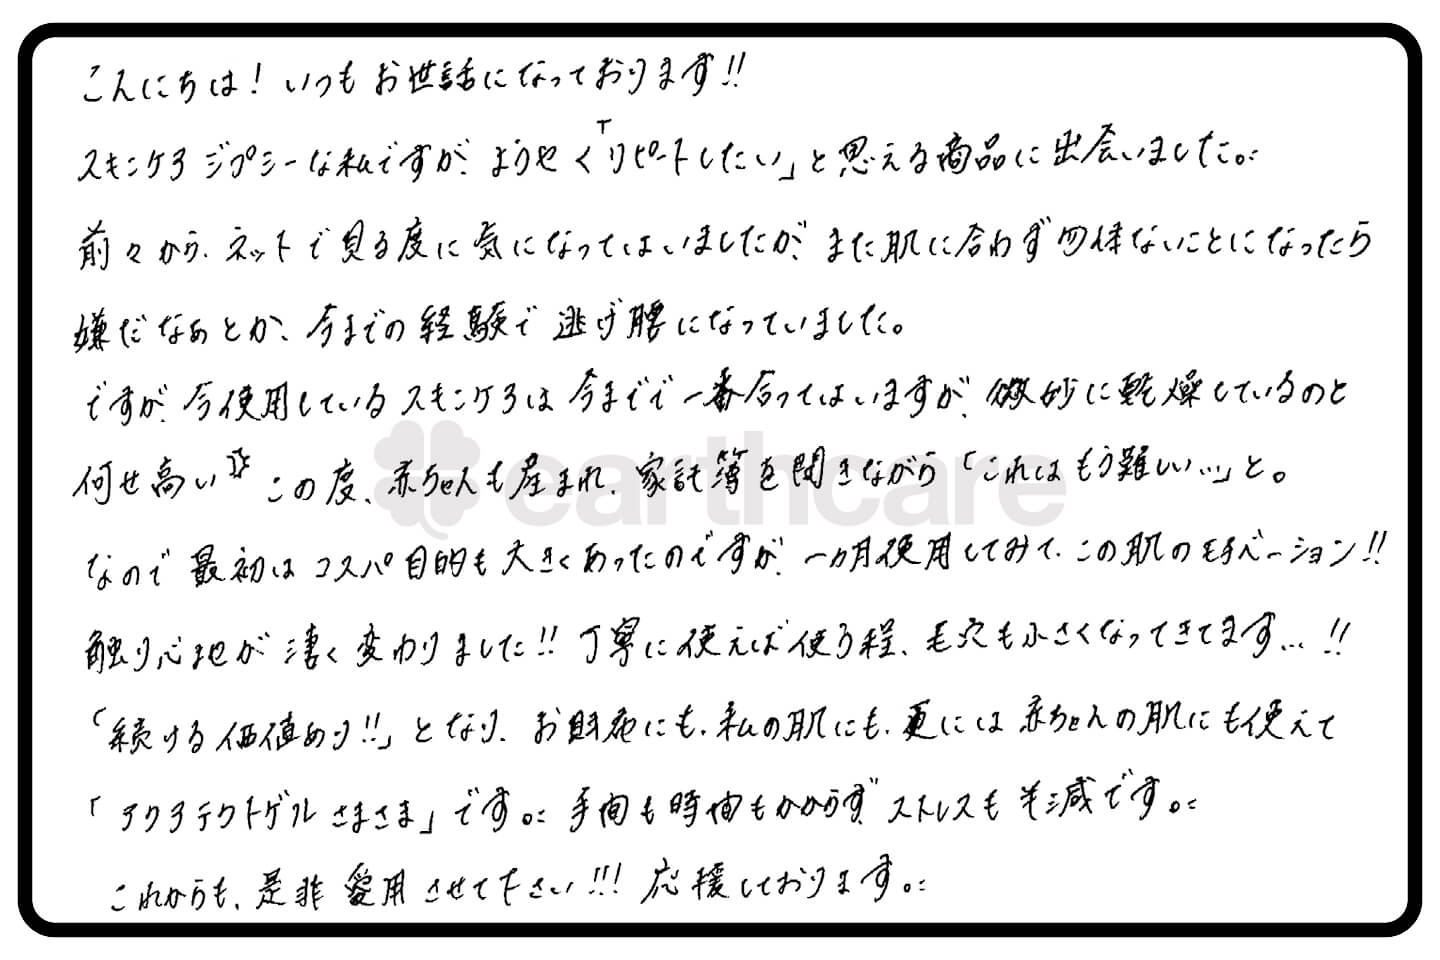 こんにちは！いつもお世話になっております!!
スキンケアジプシーな私ですが、ようやく「リピートしたい」と思える商品に出会いました。
前々から、ネットで見る度に気になってはいましたが、また肌に合わず勿体ないことになったら
嫌だなぁとか、今までの経験で逃げ腰になっていました。
ですが、今使用しているスキンケアは今までで一番合ってはいますが、微妙に乾燥しているのと
何せ高い この度、赤ちゃんも産まれ、家計簿を開きながら「これはもう難しい…」と。
なので最初はコスパ目的も大きくあったのですが、一ヵ月使用してみて、この肌のモチベーション!!
触り心地が凄く変わりました!!丁寧に使えば使う程、毛穴も小さくなってきてます…!!
「続ける価値あり!!」となり、お財布にも、私の肌にも、更には赤ちゃんの肌にも使えて
「アクアテクトゲルさまさま」です。手間も時間もかからずストレスも半減です。
これからも、是非愛用させて下さい!!!応援しております。
earthcare